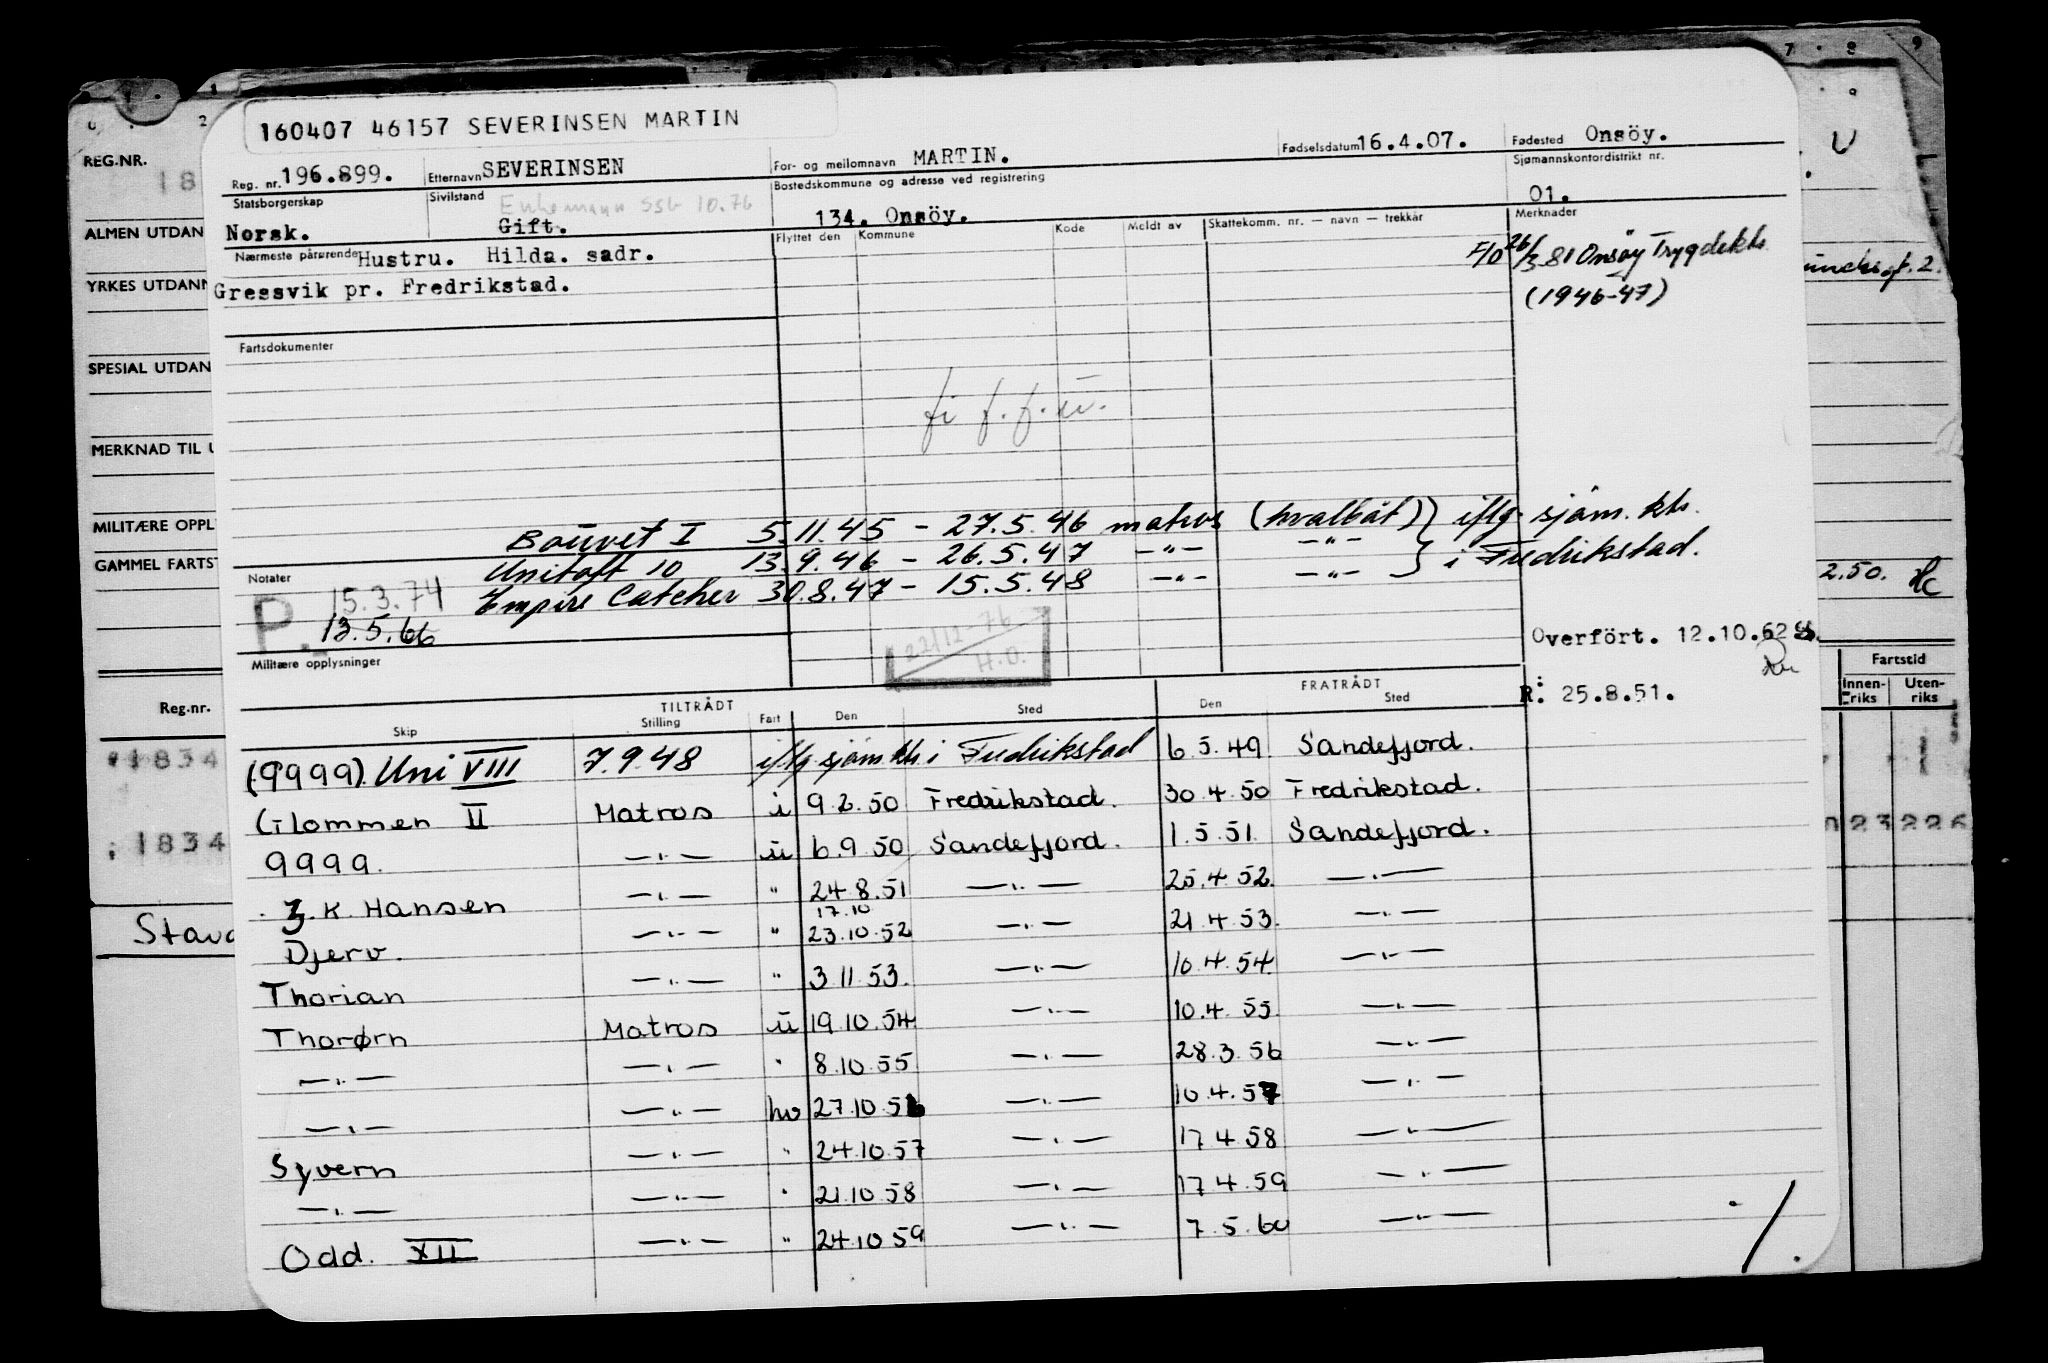 160407 46157 SEVERINSEN MARTIN
Reg. nr. 196.899. Etternavn SEVERINSEN For- og mellomnavn MARTIN. Fødselsdatum 16.4.07. Fødested Onsöy.
Statsborgerskap Sivilstand Enkemann SSB 10.76 Bostedskommune og adresse ved registrering Sjømannskontordistrikt nr.
Norsk. Gift. 134. Onsöy. 01.
Nærmeste pårørende Hustru. Hilda. sadr. Flyttet den Kommune Kode Meldt av Skattekomm. nr. — navn — trekkår Merknader
Gressvik pr. Fredrikstad. F/O 26/3 81 Onsøy Trygdekt.
(1946-47)
Fartsdokumenter
Bouvet I 5.11.45 - 27.5.46 matros (hvalbåt) iflg. sjøm. kt.
Unitaft 10 13.9.46 - 26.5.47 -"- -"- i Fredrikstad.
Empire Catcher 30.8.47 - 15.5.48 -"- -"-
Notater
P. 15.3.74
13.5.66
22/12-76
H.O.
Overfört. 12.10.62
Militære opplysninger
R: 25.8.51.
TILTRÅDT FRATRÅDT
Skip Stilling Fart Den Sted Den Sted
(9999) Uni VIII 7.9.48 iflg sjøm.kt. i Fredrikstad 6.5.49 Sandefjord.
Glommen II Matros i 9.2.50 Fredrikstad. 30.4.50 Fredrikstad.
9999. —"— ü 6.9.50 Sandefjord. 1.5.51 Sandefjord.
J.K. Hansen —"— " 24.8.51 —"— 25.4.52 —"—
17.10
Djerv. —"— " 23.10.52 —"— 21.4.53. —"—
Thorian —"— " 3.11.53. —"— 10.4.54 —"—
Thorørn Matros ü 19.10.54 —"— 10.4.55 —"—
—"— —"— " 8.10.55 —"— 28.3.56 —"—
—"— —"— hv 27.10.56 —"— 10.4.57 —"—
Syvern —"— " 24.10.57 —"— 17.4.58 —"—
—"— —"— " 21.10.58 —"— 17.4.59 —"—
Odd. XII —"— " 24.10.59 —"— 7.5.60 —"—
REG.NR.
18
ALMEN UTDAN
YRKES UTDANN
SPESIAL UTDAN
MERKNAD TIL U
MILITÆRE OPPL
GAMMEL FARTST
Reg.nr.
1834
1834
Stava
U
2.50. Hc
Fartstid
Innen- riks Uten- riks
023 226